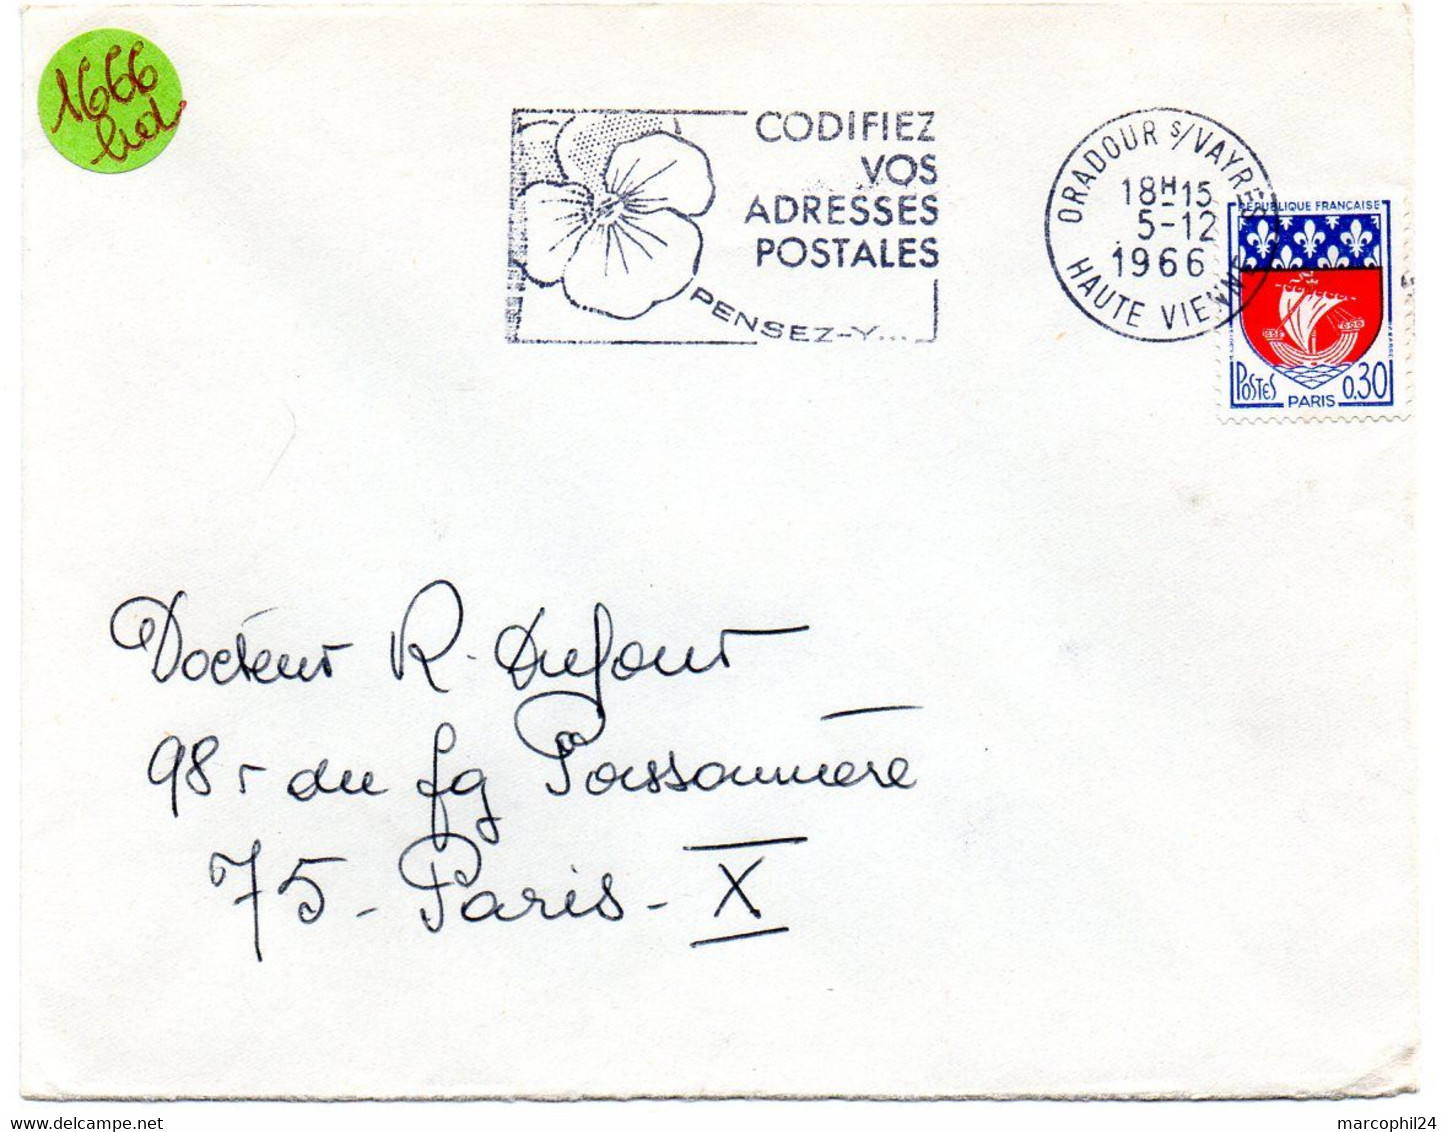 1666
CODIFIEZ
VOS
ADRESSES
POSTALES
PENSEZ-Y...
ORADOUR S/VAYRES
18H15
5-12
1966
HAUTE VIENNE
REPUBLIQUE FRANÇAISE
POSTES
0.30
PARIS
Docteur R. Dufour
98 r du fg Poissonnière
75 - Paris - X
marcophil24